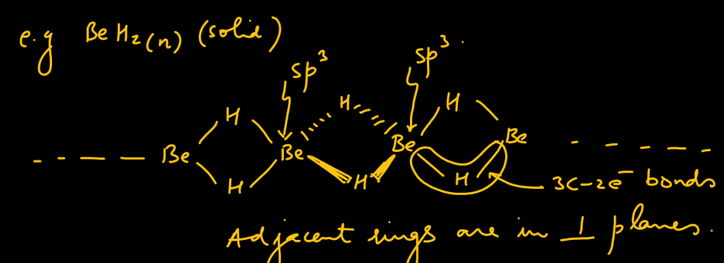 e.g BeH₂(n) (solid)
Sp³ Sp³.
H H H
Be Be Be Be
H H H
3C-2e⁻ bonds
Adjacent rings are in ⊥ planes.